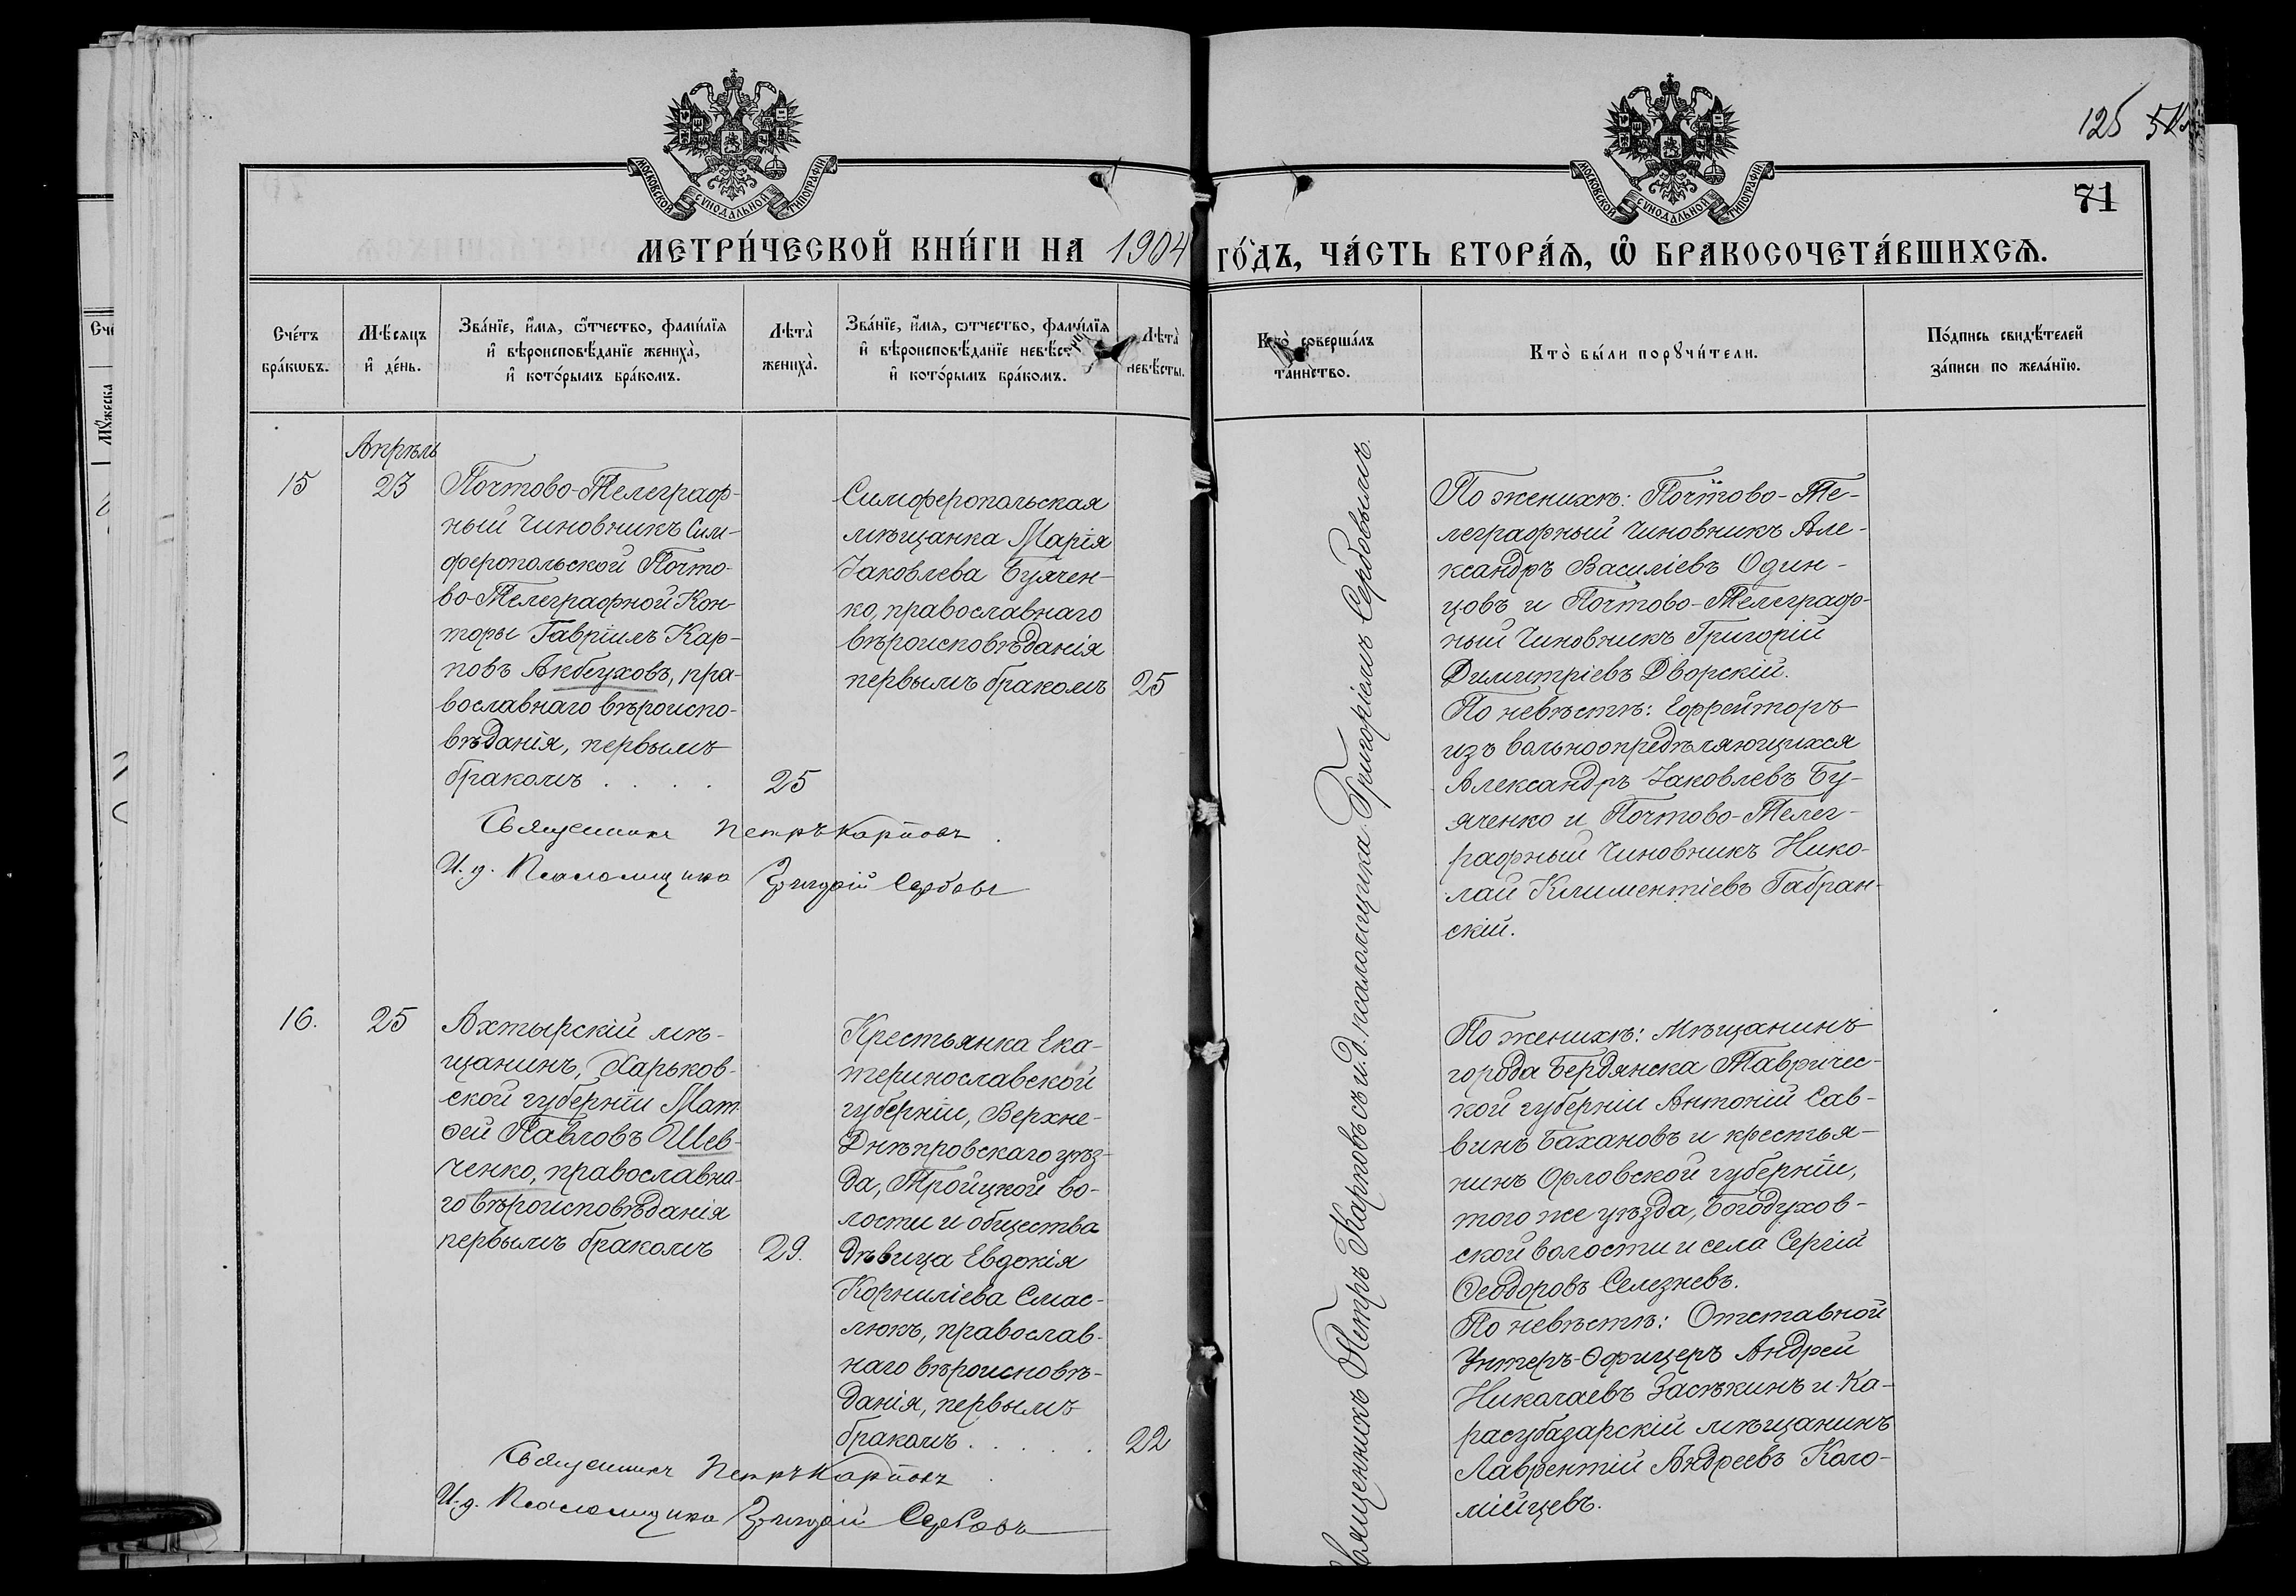 125
71
МОСКОВСКОЙ СѴНОДАЛЬНОЙ ТИПОГРАФІИ
МОСКОВСКОЙ СѴНОДАЛЬНОЙ ТИПОГРАФІИ
МЕТРИ́ЧЕСКОЙ КНИ́ГИ НА 1904 ГО́ДЪ, ЧА́СТЬ ВТОРА́Ѧ, Ѡ҆ БРАКОСОЧЕТА́ВШИХСѦ.
Сче́тъ
бра́кѡвъ.
Мѣ́сѧцъ
и҆ де́нь.
Зва́нїе, и҆́мѧ, ѻ҆́тчество, фами́лїѧ
и҆ вѣроисповѣ́данїе жениха̀,
и҆ кото́рымъ бра́комъ.
Лѣта̀
жениха̀.
Зва́нїе, и҆́мѧ, ѻтчество, фами́лїѧ
и҆ вѣроисповѣ́данїе невѣ́сты
и҆ кото́рымъ бра́комъ.
Лѣта̀
невѣ́сты.
Кто̀ соверша́лъ
та́инство.
Кто̀ бы́ли порꙋчи́тели.
По́дпись свидѣ́телей
за́писи по жела́нїю.
15
Апрѣль
23
Почтово-Телеграф-
ный чиновникъ Сим-
феропольской Почто-
во-Телеграфной Кон-
торы Гавріилъ Кар-
повъ Акбеуховъ, пра-
вославнаго вѣроиспо-
вѣданія, первымъ
бракомъ . . . .
25
Симферопольская
мѣщанка Марія
Іаковлева Буячен-
ко, православнаго
вѣроисповѣданія
первымъ бракомъ
25
Священникъ Петръ Карповъ.
И. д. Псаломщика Григорій Сербовъ
Священникъ Петръ Карповъ съ и. д. псаломщика Григоріемъ Сербовымъ.
По женихѣ: Почтово-Те-
леграфный чиновникъ Але-
ксандръ Василіевъ Один-
цовъ и Почтово-Телеграф-
ный чиновникъ Григорій
Димитріевъ Дворскій.
По невѣстѣ: Ефрейторъ
изъ вольноопредѣляющихся
Александръ Іаковлевъ Бу-
яченко и Почтово-Телег-
рафный чиновникъ Нико-
лай Климентіевъ Габран-
скій.
16.
25
Ахтырскій мѣ-
щанинъ, Харьков-
ской губерніи Мат-
ѳей Павловъ Шев-
ченко, православна-
го вѣроисповѣданія
первымъ бракомъ
29.
Крестьянка Ека-
теринославской
губерніи, Верхне-
Днѣпровскаго уѣз-
да, Тройцкой во-
лости и общества
дѣвица Евдокія
Корниліева Смас-
люкъ, православ-
наго вѣроисповѣ-
данія, первымъ
бракомъ . . . . .
22
Священникъ Петръ Карповъ.
И. д. Псаломщика Григорій Сербовъ
По женихѣ: Мѣщанинъ
города Бердянска Тавричес-
кой губерніи Антоній Сав-
винъ Бахановъ и крестья-
нинъ Орловской губерніи,
того же уѣзда, Богодухов-
ской волости и села Сергій
Ѳеодоровъ Селезневъ.
По невѣстѣ: Отставной
Унтеръ-Офицеръ Андрей
Николаевъ Засѣкинъ и Ка-
расубазарскій мѣщанинъ
Лаврентій Андреевъ Коло-
мійцевъ.